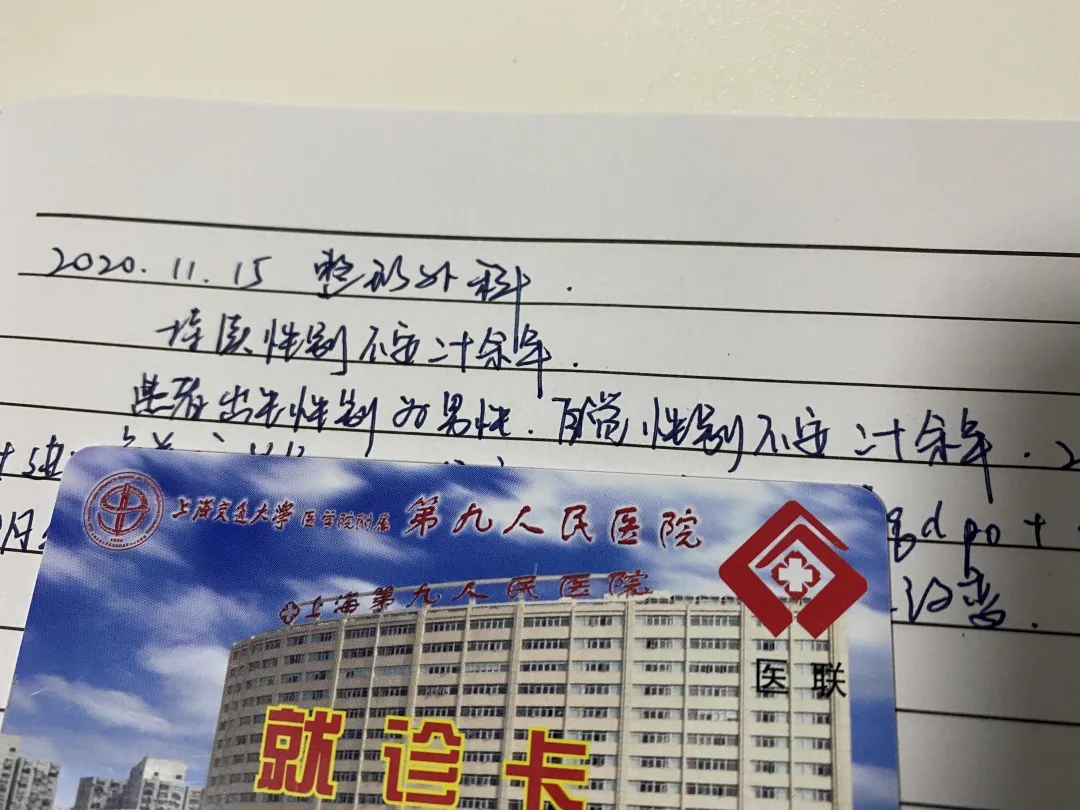 2020.11.15 整形外科.
持续性别不安二十余年.
患者出生性别为男性.自觉性别不安二十余年.2
月
dpo +
改善.
上海交通大学 医学院附属 第九人民医院
上海第九人民医院
医联
就诊卡